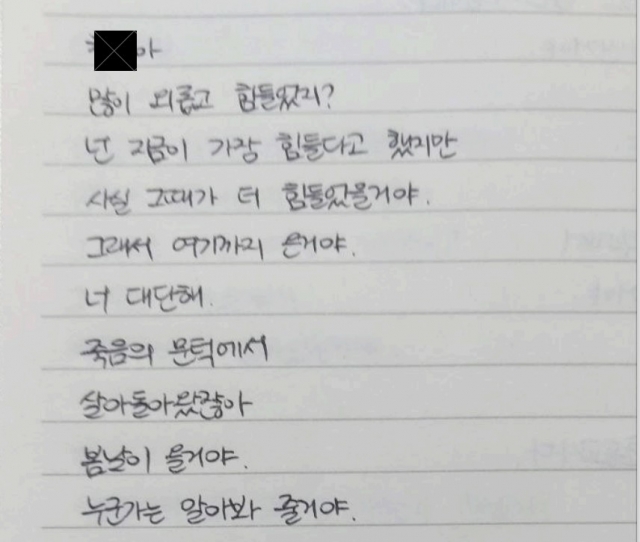 아
많이 외롭고 힘들었지?
넌 지금이 가장 힘들다고 했지만
사실 그때가 더 힘들었을거야.
그래서 여기까지 온거야.
너 대단해.
죽음의 문턱에서
살아돌아왔잖아
봄날이 올거야.
누군가는 알아봐 줄거야.